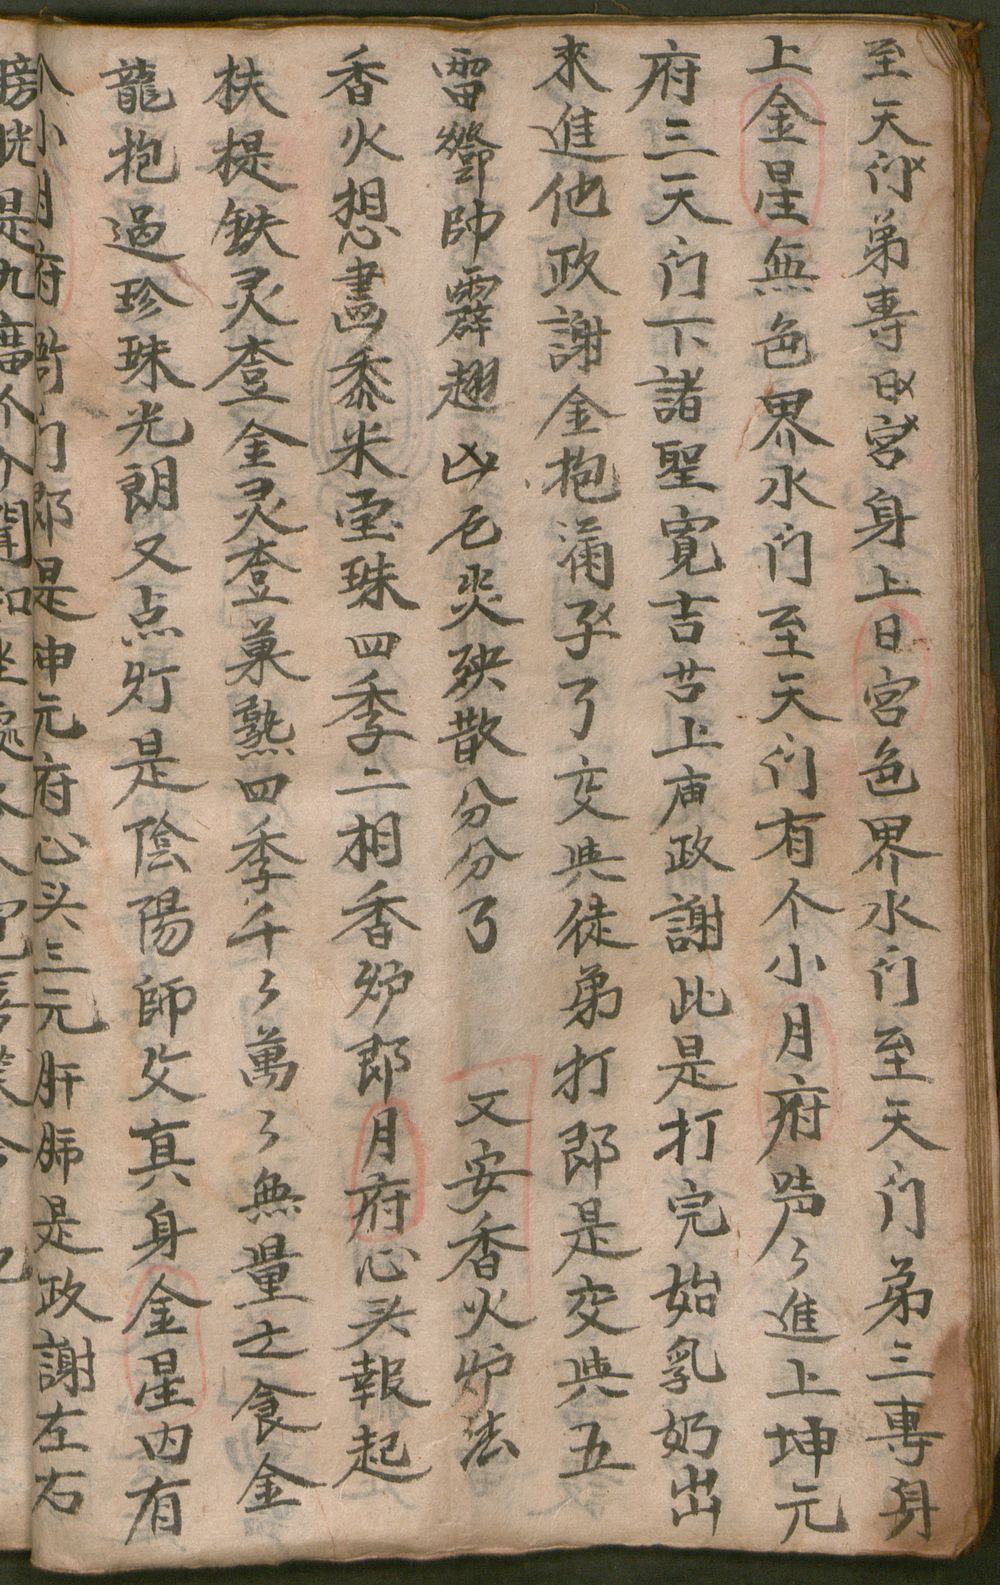 至天门弟專日宮身上日宮色界水门至天门弟三專身
上金星無色界水门至天门有个小月府哠々進上坤元
府三天门下諸聖寬吉苦上庙政謝此是打完始乳奶出
來進他政謝金抱浦子了交與徒弟打郎是交與五
雷鄧帥霹趐凶厄災殃散分分了 又安香火炉法
香火想畫黍米宝珠四季二相香炉郎月府心头報起
扶提鉄灵壺金灵壺菓熟四季千々萬々無量士食金
龍抱過珍珠光朗又点灯是陰陽師父真身金星内有
小月府 门郎是坤元府心头三元肝肺是政謝左右
膀胱是九 个